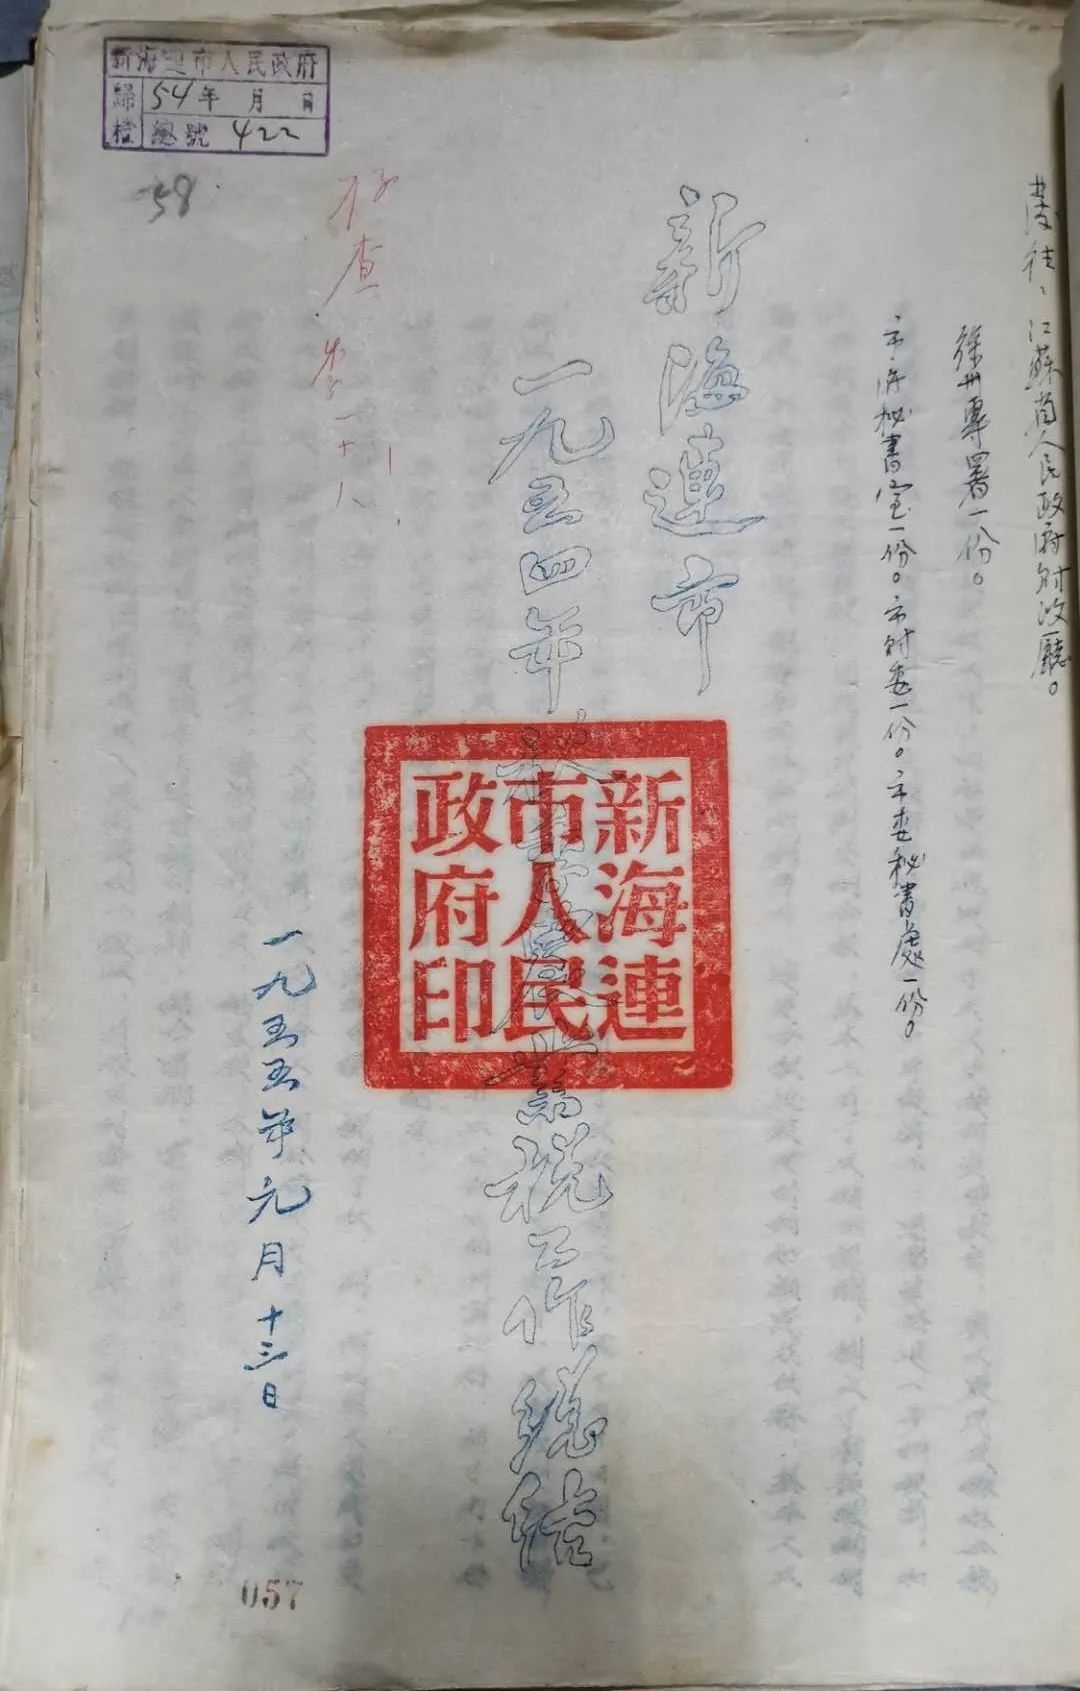 新海連市人民政府
歸檔
54年 月 日
總號 422
58
发往：江蘇省人民政府財政廳。
徐州專署一份。
市府秘書室一份。市財委一份。市委秘書處一份。
新海連市
一九五四年秋季農業税工作總结
新海連
市人民
政府印
存查
李
十八
一九五五年元月十三日
057